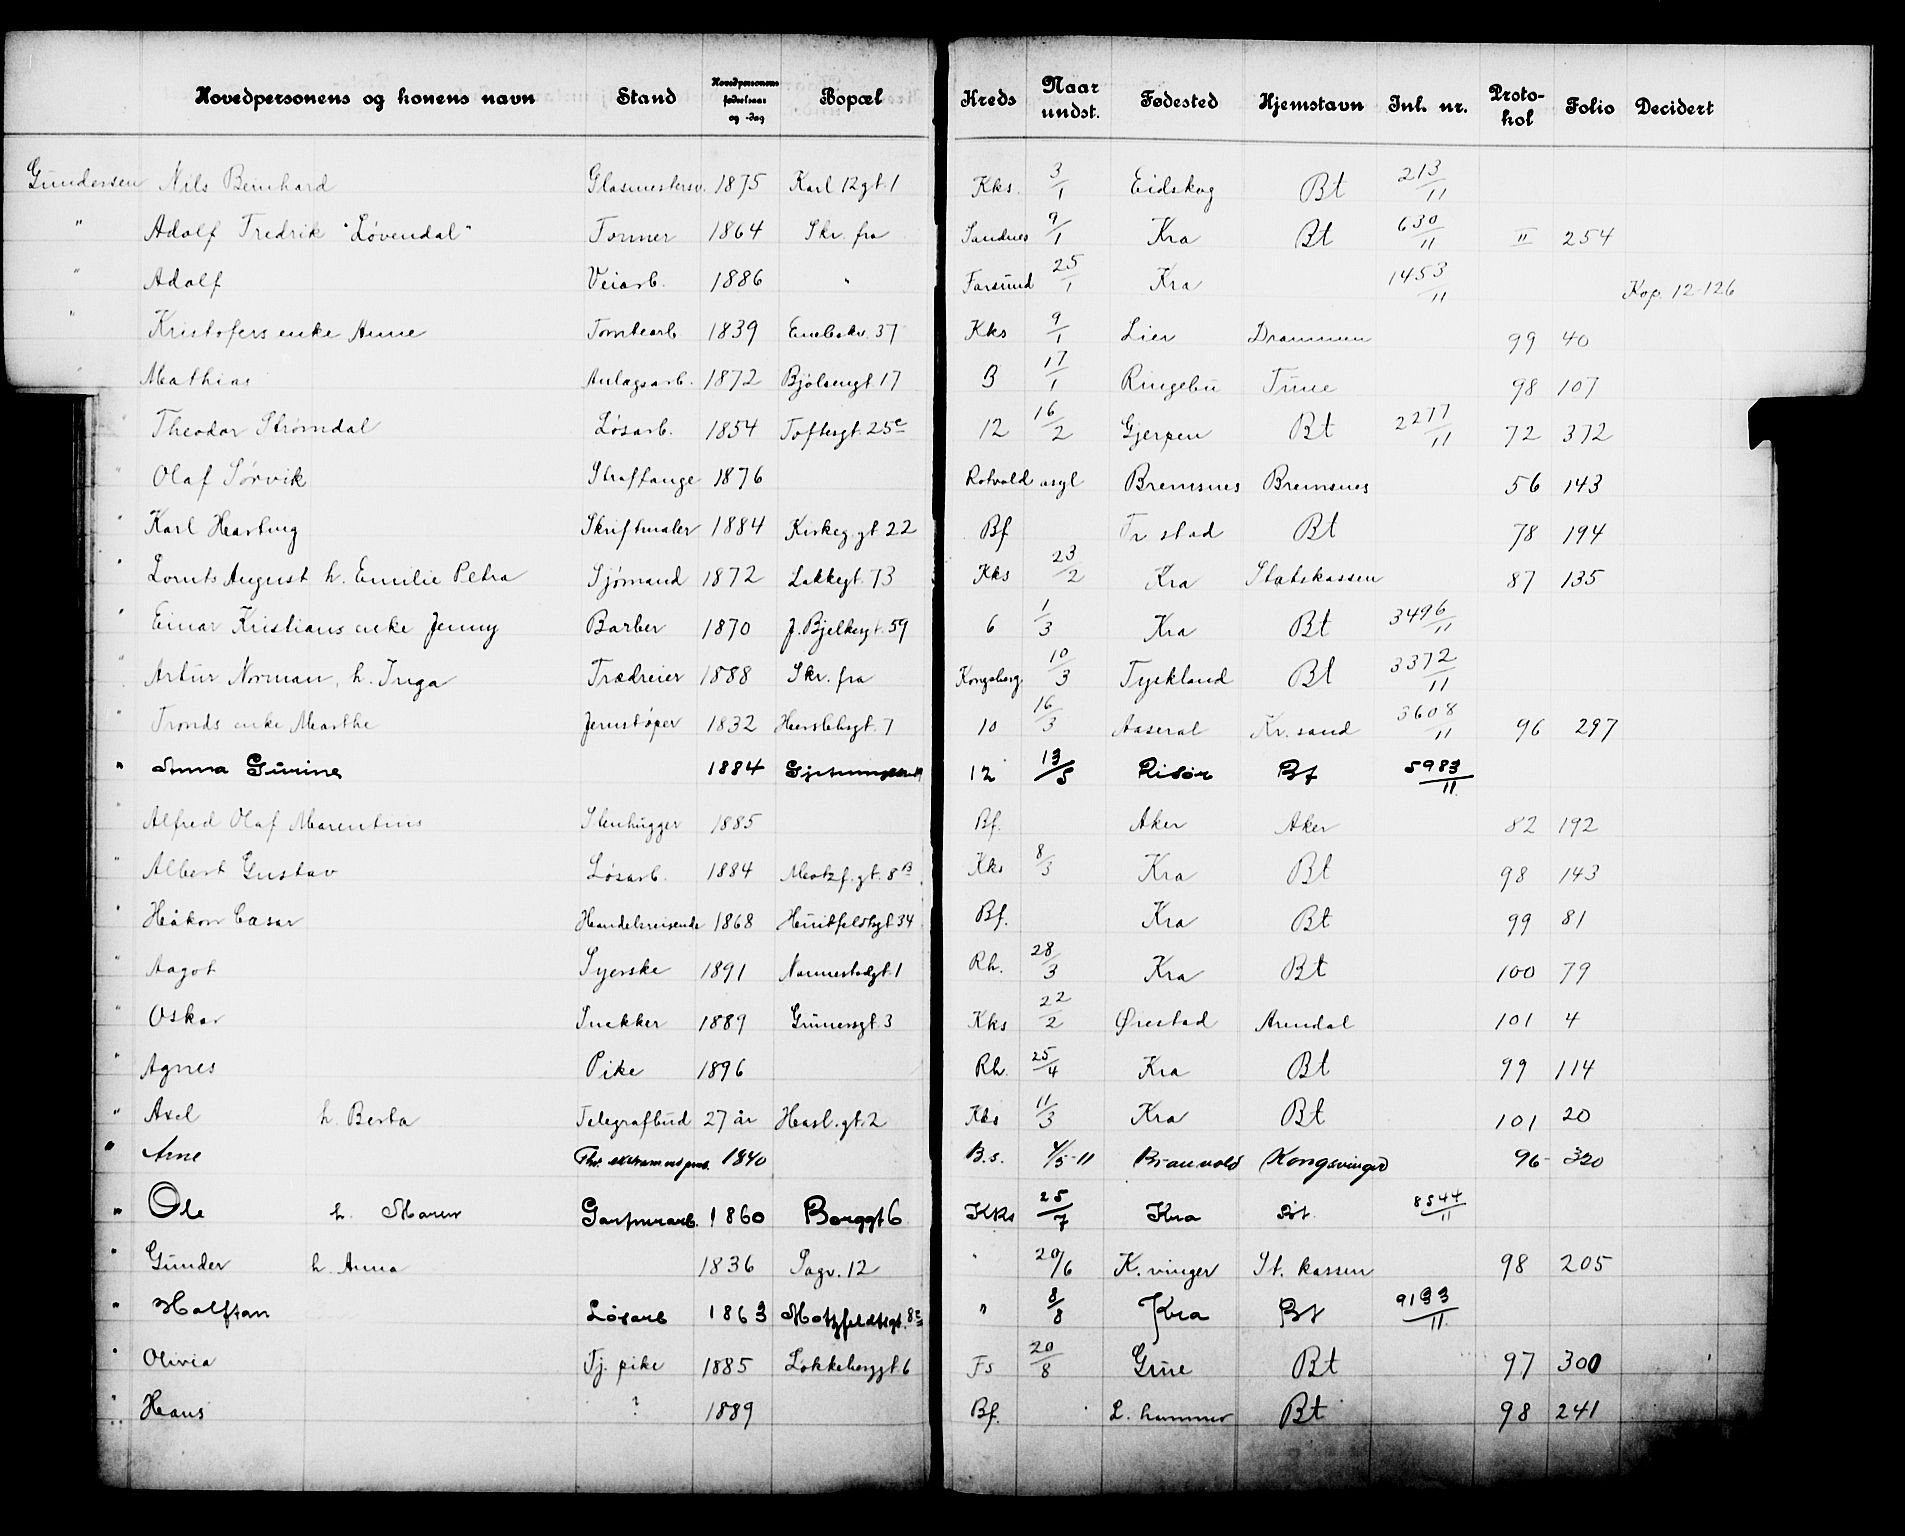 Hovedpersonens og konens navn Stand Hovedpersonens fødselsaar og -dag Bopæl Kreds Naar undst. Fødested Hjemstavn Inl. nr. Proto-kol Folio Decidert
Gundersen Nils Bernhard Glasmestersv. 1875 Karl 12 gt. 1 Kks. 3/1 Eidskog Bt 213/11
" Adolf Fredrik "Løvendal" Former 1864 Skr. fra Sandnes 9/1 Kra Bt 630/11 II 254
" Adolf Veiarb. 1886 " Farsund 25/1 Kra 1453/11 Kop. 12-126
" Kristofers enke Anne Tomtearb 1839 37 Kks 9/1 Lier Drammen 99 40
Mathias Anlægsarb. 1872 Bjølsengt. 17 B 17/1 Ringebu Tune 98 107
" Theodor Strømdal Løsarb. 1854 Toftesgt. 25c 12 16/2 Gjerpen Bt 2277/11 72 372
" Olaf Sørvik Straffange 1876 Rotvold asyl Bremsnes Bremsnes 56 143
" Karl Hartvig Skriftmaler 1884 Kirkeg.gt. 22 Bf Fr. stad Bt 78 194
" Loruts August h. Emilie Petra Sjømand 1872 Lakkegt. 73 Kks 23/2 Kra Statskassen 87 135
" Einar Kristians enke Jenny Barber 1870 J. Bjelkesgt. 59 6 1/3 Kra Bt 3496/11
" Artur Norman, h. Inga Trædreier 1888 Skr. fra Kongsberg 10/3 Tyskland Bt 3372/11
" Tronds enke Marthe Jernstøper 1832 Herslebsgt. 7 10 16/3 Aaseral Kr. sand 3608/11 96 297
" Anna Gurine 1884 12 13/5 Risør Bt 5983/11
" Alfred Olaf Marentius Stenhugger 1885 Bf. Aker Aker 82 192
" Albert Gustav Løsarb. 1884 Motzf.gt. 8B Kks 8/3 Kra Bt 98 143
" Håkon Cæsar Handelsreisende 1868 Huitfeldtsgt. 34 Bf. Kra Bt 99 81
" Aagot Syerske 1891 Nannestadgt. 1 Rh. 28/3 Kra Bt 100 79
" Oskar Snekker 1889 Grünersgt. 3 Kks 22/2 Ørestad Arendal 101 4
" Agnes Pike 1896 Rh. 25/4 Kra Bt 99 114
" Axel h. Berta Telegrafbud 27 år Hasl. gt. 2 Kks 11/3 Kra Bt 101 20
" Arne 1840 B.s. 4/5-11 Brandvold Kongsvinger 96- 320
" Ole h. Maren Gartnerarb. 1860 Borggt 6 Kks 25/7 Kra Bt. 8544/11
" Gunder h. Anna 1836 Sagv. 12 " 20/6 K. vinger St. kassen 98 205
" Halfdan Løsarb 1863 Motzfeldtsgt. 8 " 8/8 Kra Bt 9133/11
" Olivia Tj. pike 1885 Løkkeberggt. 6 Fs 20/8 Grue Bt 97 300
" Hans ? 1889 Bf. L. hammer Bt 98 241